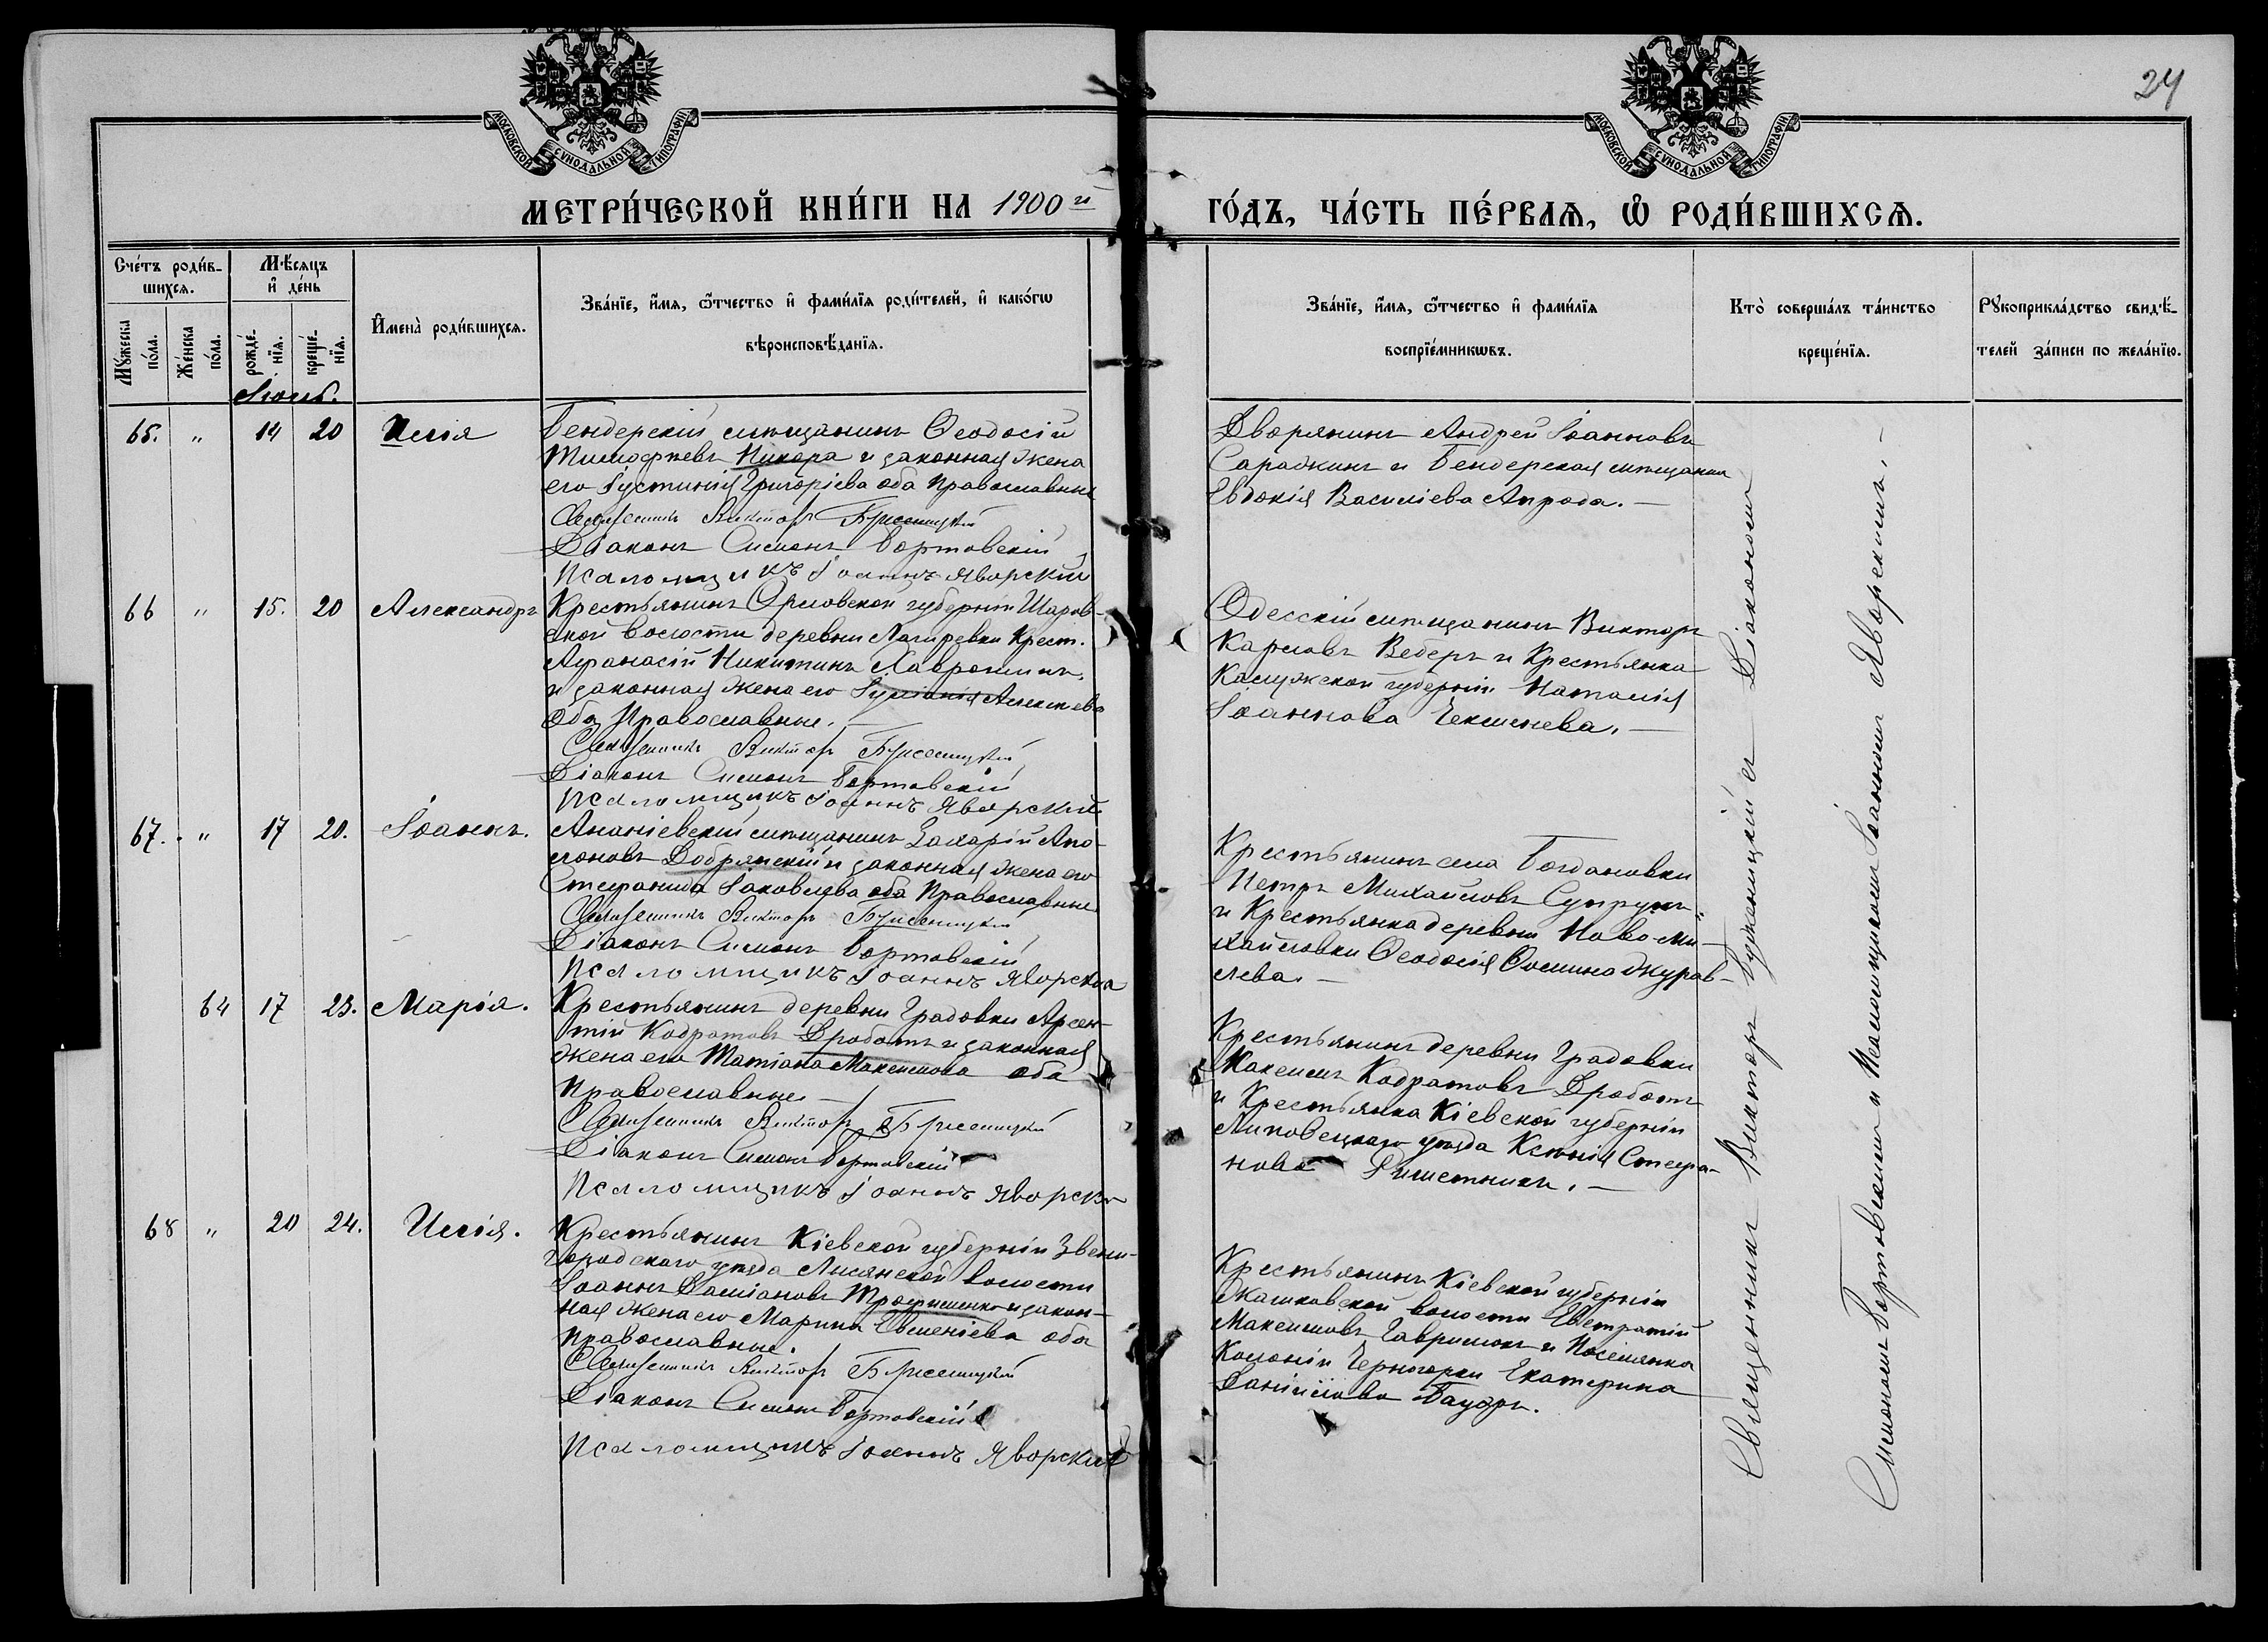 24
МОСКОВСКОЙ СѴНОДАЛЬНОЙ ТИПОГРАФІИ
МОСКОВСКОЙ СѴНОДАЛЬНОЙ ТИПОГРАФІИ
МЕТРИ́ЧЕСКОЙ КНИ́ГИ НА 1900 й
ГО́ДЪ, ЧА́СТЬ ПЕ́РВАѦ, Ѡ҆ РОДИ́ВШИХСѦ.
Сче́тъ роди́в-
шихсѧ.
Мѣ́сяцъ
и҆ де́нь
Мꙋ́жеска по́ла.
Же́нска по́ла.
рожде́-нїѧ.
креще́-нїѧ.
И҆мена̀ роди́вшихсѧ.
Зва́нїе, и҆́мѧ, ѻ҆́тчество и҆ фами́лїѧ роди́телей, и҆ како́гѡ
вѣроисповѣ́данїѧ.
Зва́нїе, и҆́мѧ, ѻ҆́тчество и҆ фами́лїѧ
воспрїе́мникѡвъ.
Кто̀ соверша́лъ та́инство
креще́нїѧ.
Рꙋкоприкла́дство свидѣ́-
телей за́писи по жела́нїю.
Іюль.
65. " 14 20 Илія
Бендерскій мѣщанинъ Ѳеодосій
Тимоѳеевъ Никора и законная жена
его Іустинія Григоріева оба православные
Священникъ Викторъ
Діаконъ Симонъ Бортовскій
Псаломщикъ Іоаннъ Яворскій
Дворянинъ Андрей Іоанновъ
Сарадкинъ и Бендерская мѣщанка
Евдокія Василіева Апрода.—
66 " 15. 20 Александръ
Крестьянинъ Орловской губерніи Шаров-
ской волости деревни Лагиревки Крест.
Аѳанасій Никитинъ Лаврошинъ
и законная жена его Іуліанія Алексѣева
Оба Православные.—
Священникъ Викторъ
Діаконъ Симонъ Бортовскій
Псаломщикъ Іоаннъ Яворскій
Одесскій мѣщанинъ Викторъ
Карловъ Веберъ и Крестьянка
Калужской губерніи Наталія
Іоаннова Чекменева.—
67. " 17 20. Іоаннъ.
Ананіевскій мѣщанинъ Захарій Апо-
лоновъ Добрянскій и законная жена его
Стефанида Іаковлева оба Православные
Священникъ Викторъ
Діаконъ Симонъ Бортовскій
Псаломщикъ Іоаннъ Яворскій
Крестьянинъ села Богдановки
Петръ Михайловъ Супрунъ
и Крестьянка деревни Ново-Ми-
хайловки Ѳеодосія Ѳомина Журав-
лева.—
64 17 23. Марія.
Крестьянинъ деревни Градовки Арсен-
тій Кодратовъ Дроботъ и законная
жена его Татіана Максимова оба
Православные.—
Священникъ Викторъ
Діаконъ Симонъ Бортовскій
Псаломщикъ Іоаннъ Яворскій
Крестьянинъ деревни Градовки
Максимъ Кодратовъ Дроботъ
и Крестьянка Кіевской губерніи
Липовецкаго уѣзда Ксенія Стефа-
нова Ришетникъ.—
68 " 20 24. Илія.
Крестьянинъ Кіевской губерніи Звени-
городскаго уѣзда Лисянской волости
Іоаннъ Даміановъ Трофименко и закон-
ная жена его Марина Евменіева оба
Православные.
Священникъ Викторъ
Діаконъ Симонъ Бортовскій
Псаломщикъ Іоаннъ Яворскій
Крестьянинъ Кіевской губерніи
Жашковской волости Евстратій
Максимовъ Гаврилюкъ и Поселянка
Колоніи Черногорки Екатерина
Даніилова Бауэръ.
Священникъ Викторъ Буженицкій съ Діакономъ
Симономъ Бортовскимъ и Псаломщикомъ Іоанномъ Яворскимъ.—